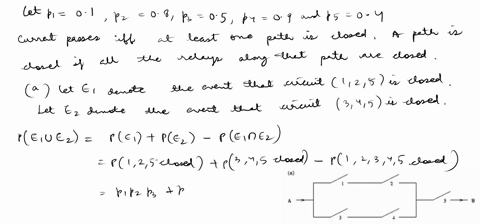 Let p1 = 0.1, p2 = 0.8, p3 = 0.5, p4 = 0.9 and p5 = 0.4
Current passes iff at least one path is closed. A path is
closed if all the relays along that path are closed.
(a) Let E1 denote the event that circuit (1,2,5) is closed.
Let E2 denote the event that circuit (3,4,5) is closed.
P(E1 ∪ E2) = P(E1) + P(E2) - P(E1 ∩ E2)
= P(1,2,5 closed) + P(3,4,5 closed) - P(1,2,3,4,5 closed)
= p1 p2 p3 + p
(a)
1 2
A 5 B
3 4